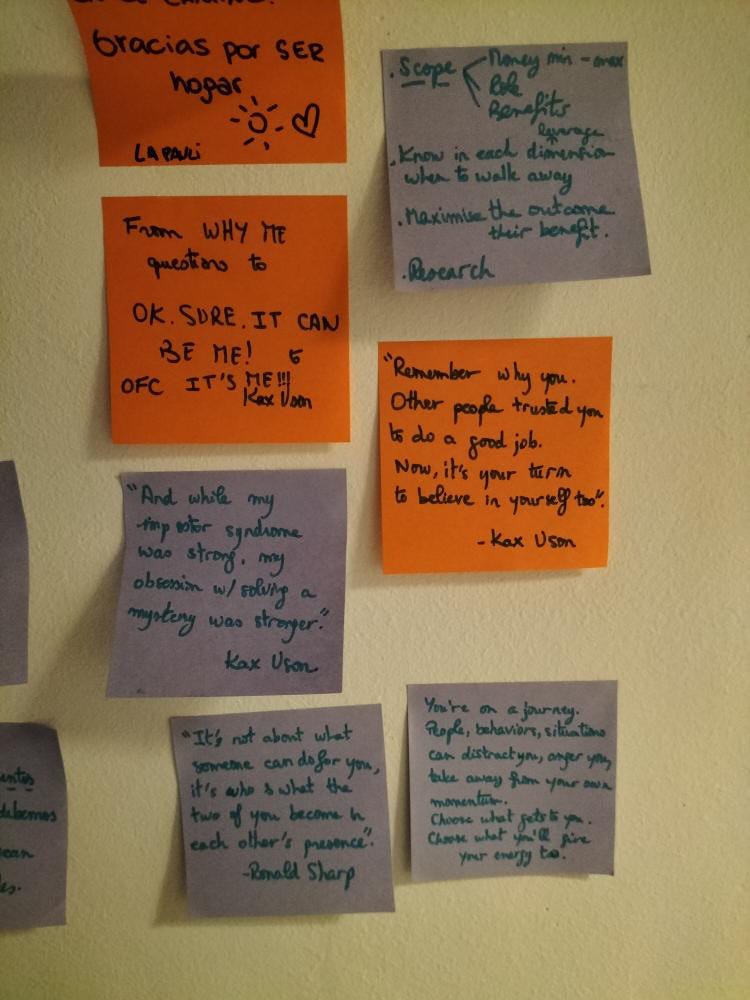 Gracias por SER
hogar
LA PAULI
. Scope
Money min - max
Role
Benefits
leverage
. Know in each dimension
when to walk away
. Maximise the outcome
their benefit.
. Research
From WHY ME
questions to
OK. SURE. IT CAN
BE ME! &
OFC IT'S ME!!!
Kax Uson
"Remember why you.
Other people trusted you
to do a good job.
Now, it's your turn
to believe in yourself too".
- Kax Uson
"And while my
impostor syndrome
was strong, my
obsession w/ solving a
mystery was stronger."
Kax Uson
"It's not about what
someone can do for you,
it's who & what the
two of you become in
each other's presence".
- Ronald Sharp
You're on a journey.
People, behaviors, situations
can distract you, anger you,
take away from your own
momentum.
Choose what gets to you.
Choose what you'll give
your energy to.
debemos